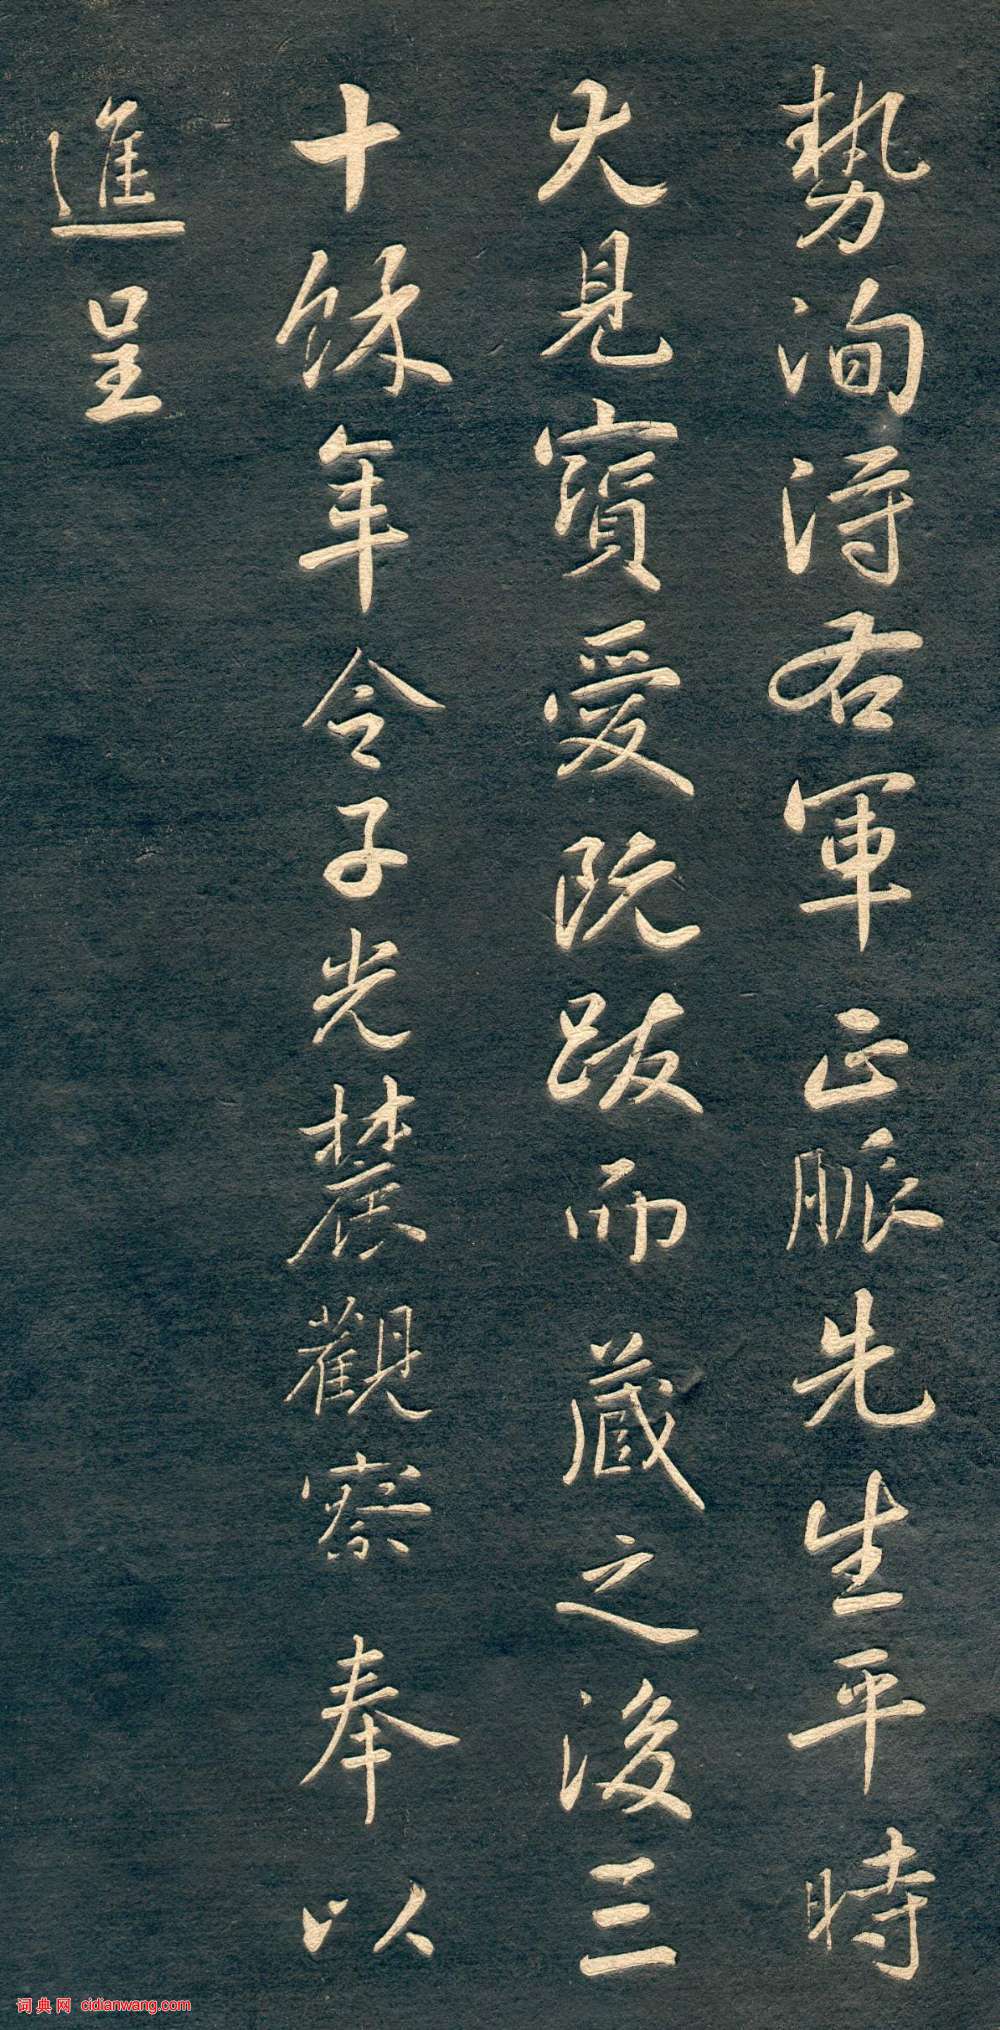 勢洵得右軍正脈先生平時
大見寶愛既跋而藏之後三
十餘年令子光麓觀察奉以
進呈
词典网 cidianwang.com